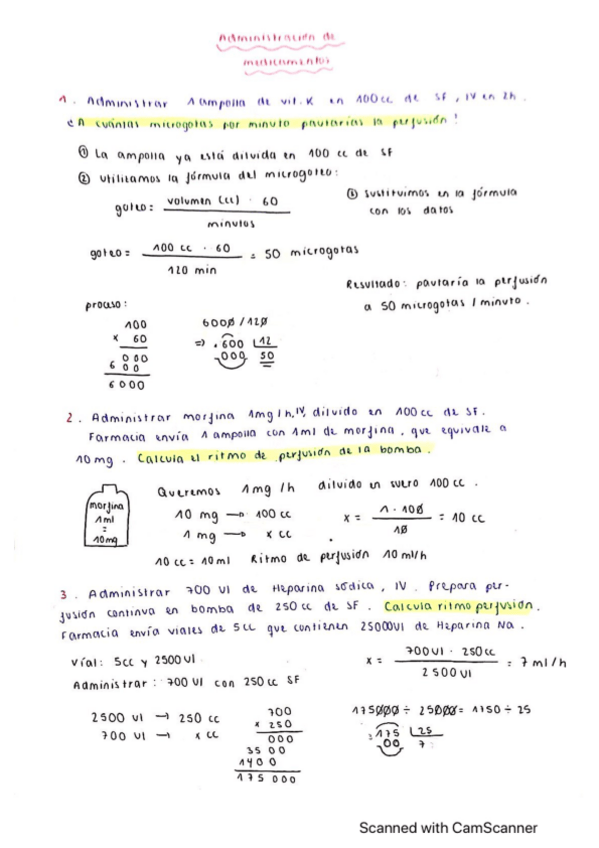 Administración de
medicamentos
1. Administrar 1 ampolla de vit. K en 100 cc de SF, IV en 2h.
¿A cuántas microgotas por minuto pautarías la perfusión!
① La ampolla ya está diluida en 100 cc de SF
② Utilizamos la fórmula del microgoteo:
goteo: volumen (cc) · 60
minutos
③ Sustituimos en la fórmula
con los datos
goteo = 100 cc · 60 = 50 microgotas
120 min
Resultado: pautaría la perfusión
a 50 microgotas / minuto.
proceso:
100
x 60
000
600
6000
6000 / 120
=> 600 12
000 50
2. Administrar morfina 1mg/h, IV, diluido en 100 cc de SF.
Farmacia envía 1 ampolla con 1ml de morfina, que equivale a
10 mg. Calcula el ritmo de perfusión de la bomba.
morfina
1ml
=
10mg
Queremos 1 mg/h diluido en suero 100 cc.
10 mg → 100 cc
1 mg → x cc
x = 1 · 100 = 10 cc
10
10 cc = 10ml Ritmo de perfusión 10 ml/h
3. Administrar 700 UI de Heparina sódica, IV. Prepara per-
fusión continua en bomba de 250 cc de SF. Calcula ritmo perfusión.
Farmacia envía viales de 5cc que contienen 25000UI de Heparina Na.
Vial: 5cc y 2500 UI
Administrar: 700 UI con 250 cc SF
x = 700 UI · 250 cc = 7 ml/h
2500 UI
2500 UI → 250 cc
700 UI → x cc
700
x 250
000
3500
1400
175 000
175000 ÷ 25000 = 1750 ÷ 25
= 175 25
00 7
Scanned with CamScanner